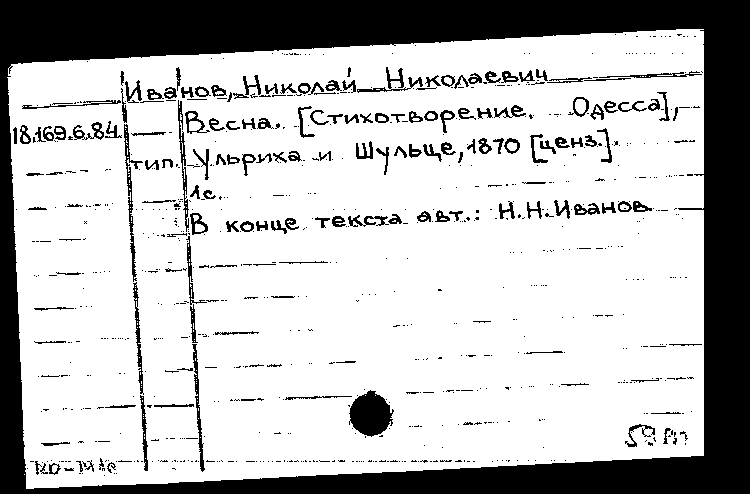 Иванов, Николай Николаевич
18.169.6.84. Весна. [Стихотворение. Одесса],
тип. Ульриха и Шульце, 1870 [ценз.].
1с.
В конце текста авт.: Н.Н.Иванов